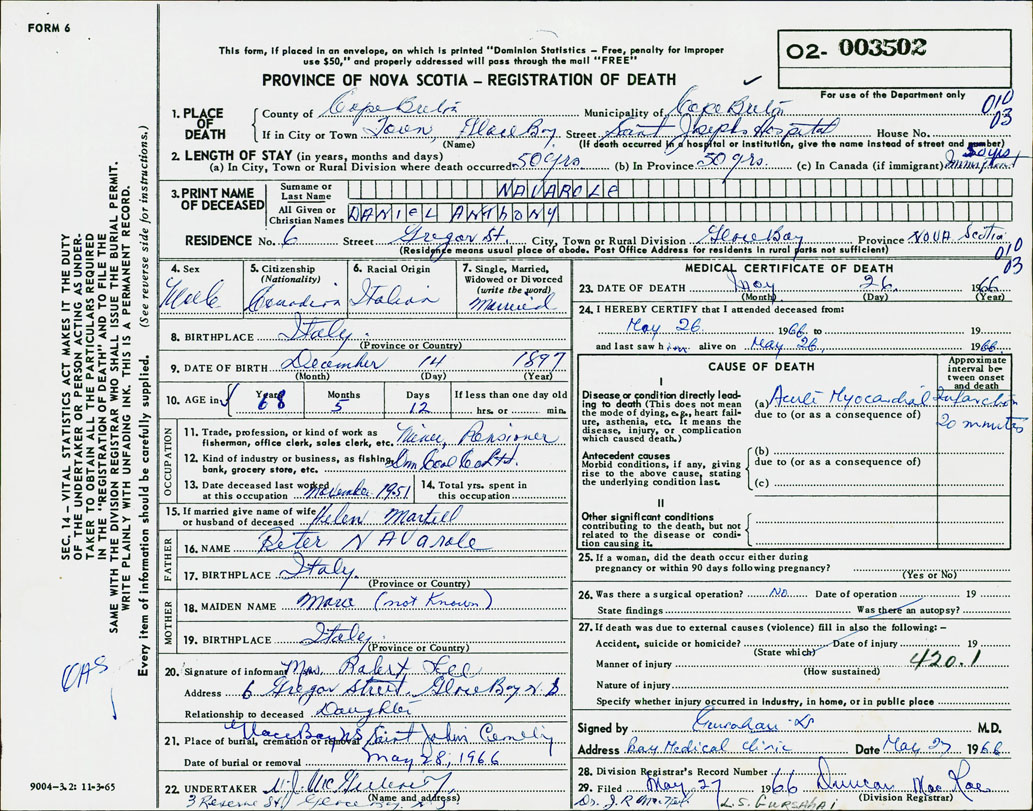 FORM 6
This form, if placed in an envelope, on which is printed "Dominion Statistics – Free, penalty for improper
use $50," and properly addressed will pass through the mail "FREE"
O2- 003502
PROVINCE OF NOVA SCOTIA – REGISTRATION OF DEATH
For use of the Department only
010
03
1. PLACE OF DEATH
County of Cape Breton Municipality of Cape Breton
If in City or Town Town, Glace Bay Street Saint Josephs Hospital House No.
(Name) (If death occurred in a hospital or institution, give the name instead of street and number)
2. LENGTH OF STAY (in years, months and days)
(a) In City, Town or Rural Division where death occurred 50 yrs. (b) In Province 50 yrs. (c) In Canada (if immigrant) 50 yrs
3. PRINT NAME OF DECEASED
Surname or Last Name NAVAROLE
All Given or Christian Names DANIEL ANTHONY
RESIDENCE No. 6 Street Gregor St. City, Town or Rural Division Glace Bay Province NOVA Scotia
(Residence means usual place of abode. Post Office Address for residents in rural parts not sufficient)
010
03
4. Sex Male
5. Citizenship (Nationality) Canadian
6. Racial Origin Italian
7. Single, Married, Widowed or Divorced (write the word) Married
8. BIRTHPLACE Italy.
(Province or Country)
9. DATE OF BIRTH December 14 1897
(Month) (Day) (Year)
10. AGE in Years 68 Months 5 Days 12 If less than one day old hrs. or min.
OCCUPATION
11. Trade, profession, or kind of work as
fisherman, office clerk, sales clerk, etc. Miner, Pensioner
12. Kind of industry or business, as fishing,
bank, grocery store, etc. Dom Coal Co Ltd.
13. Date deceased last worked
at this occupation November 1951
14. Total yrs. spent in
this occupation
15. If married give name of wife
or husband of deceased Helen Martell
FATHER
16. NAME Peter NAVarole
17. BIRTHPLACE Italy.
(Province or Country)
MOTHER
18. MAIDEN NAME Marie (not Known)
19. BIRTHPLACE Italy.
(Province or Country)
20. Signature of informant Mrs. Robert
Address 6 Gregor Street, Glace Bay N.S
Relationship to deceased Daughter
21. Place of burial, cremation or removal Glace Bay NS Saint John Cemetry
Date of burial or removal May 28, 1966
22. UNDERTAKER
(Name and address)
3 Reserve St. Glace Bay N.S.
MEDICAL CERTIFICATE OF DEATH
23. DATE OF DEATH May 26. 1966
(Month) (Day) (Year)
24. I HEREBY CERTIFY that I attended deceased from:
May 26. 1966 to 19
and last saw him alive on May 26, 1966.
CAUSE OF DEATH
Approximate interval between onset and death
I
Disease or condition directly leading
to death (This does not mean
the mode of dying, e.g., heart failure,
asthenia, etc. It means the
disease, injury, or complication
which caused death.)
(a) Acute Myocardial Infarction
due to (or as a consequence of)
20 minutes
Antecedent causes
Morbid conditions, if any, giving
rise to the above cause, stating
the underlying condition last.
(b)
due to (or as a consequence of)
(c)
II
Other significant conditions
contributing to the death, but not
related to the disease or condition
causing it.
25. If a woman, did the death occur either during
pregnancy or within 90 days following pregnancy?
(Yes or No)
26. Was there a surgical operation? No. Date of operation 19
State findings Was there an autopsy?
27. If death was due to external causes (violence) fill in also the following: –
Accident, suicide or homicide? Date of injury 19
(State which)
Manner of injury 420.1
(How sustained)
Nature of injury
Specify whether injury occurred in industry, in home, or in public place
Signed by M.D.
Address Bay Medical Clinic Date May 27 1966
28. Division Registrar's Record Number
29. Filed May 27 1966 Duncan MacRae
(Division Registrar)
L.S. GURSAHAI
SEC. 14 – VITAL STATISTICS ACT MAKES IT THE DUTY
OF THE UNDERTAKER OR PERSON ACTING AS UNDER-
TAKER TO OBTAIN ALL THE PARTICULARS REQUIRED
IN THE "REGISTRATION OF DEATH" AND TO FILE THE
SAME WITH THE DIVISION REGISTRAR WHO SHALL ISSUE THE BURIAL PERMIT.
WRITE PLAINLY WITH UNFADING INK. THIS IS A PERMANENT RECORD.
Every item of information should be carefully supplied. (See reverse side for instructions.)
OAS
9004-3.2: 11-3-65